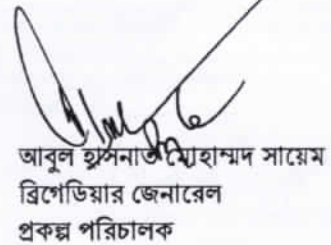 আবুল হাসনাত মোহাম্মদ সায়েম
ব্রিগেডিয়ার জেনারেল
প্রকল্প পরিচালক